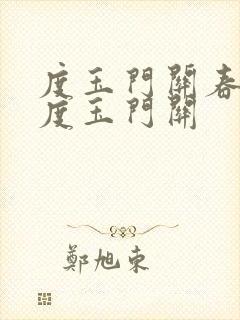 度玉門關春
度玉門關
鄭旭東